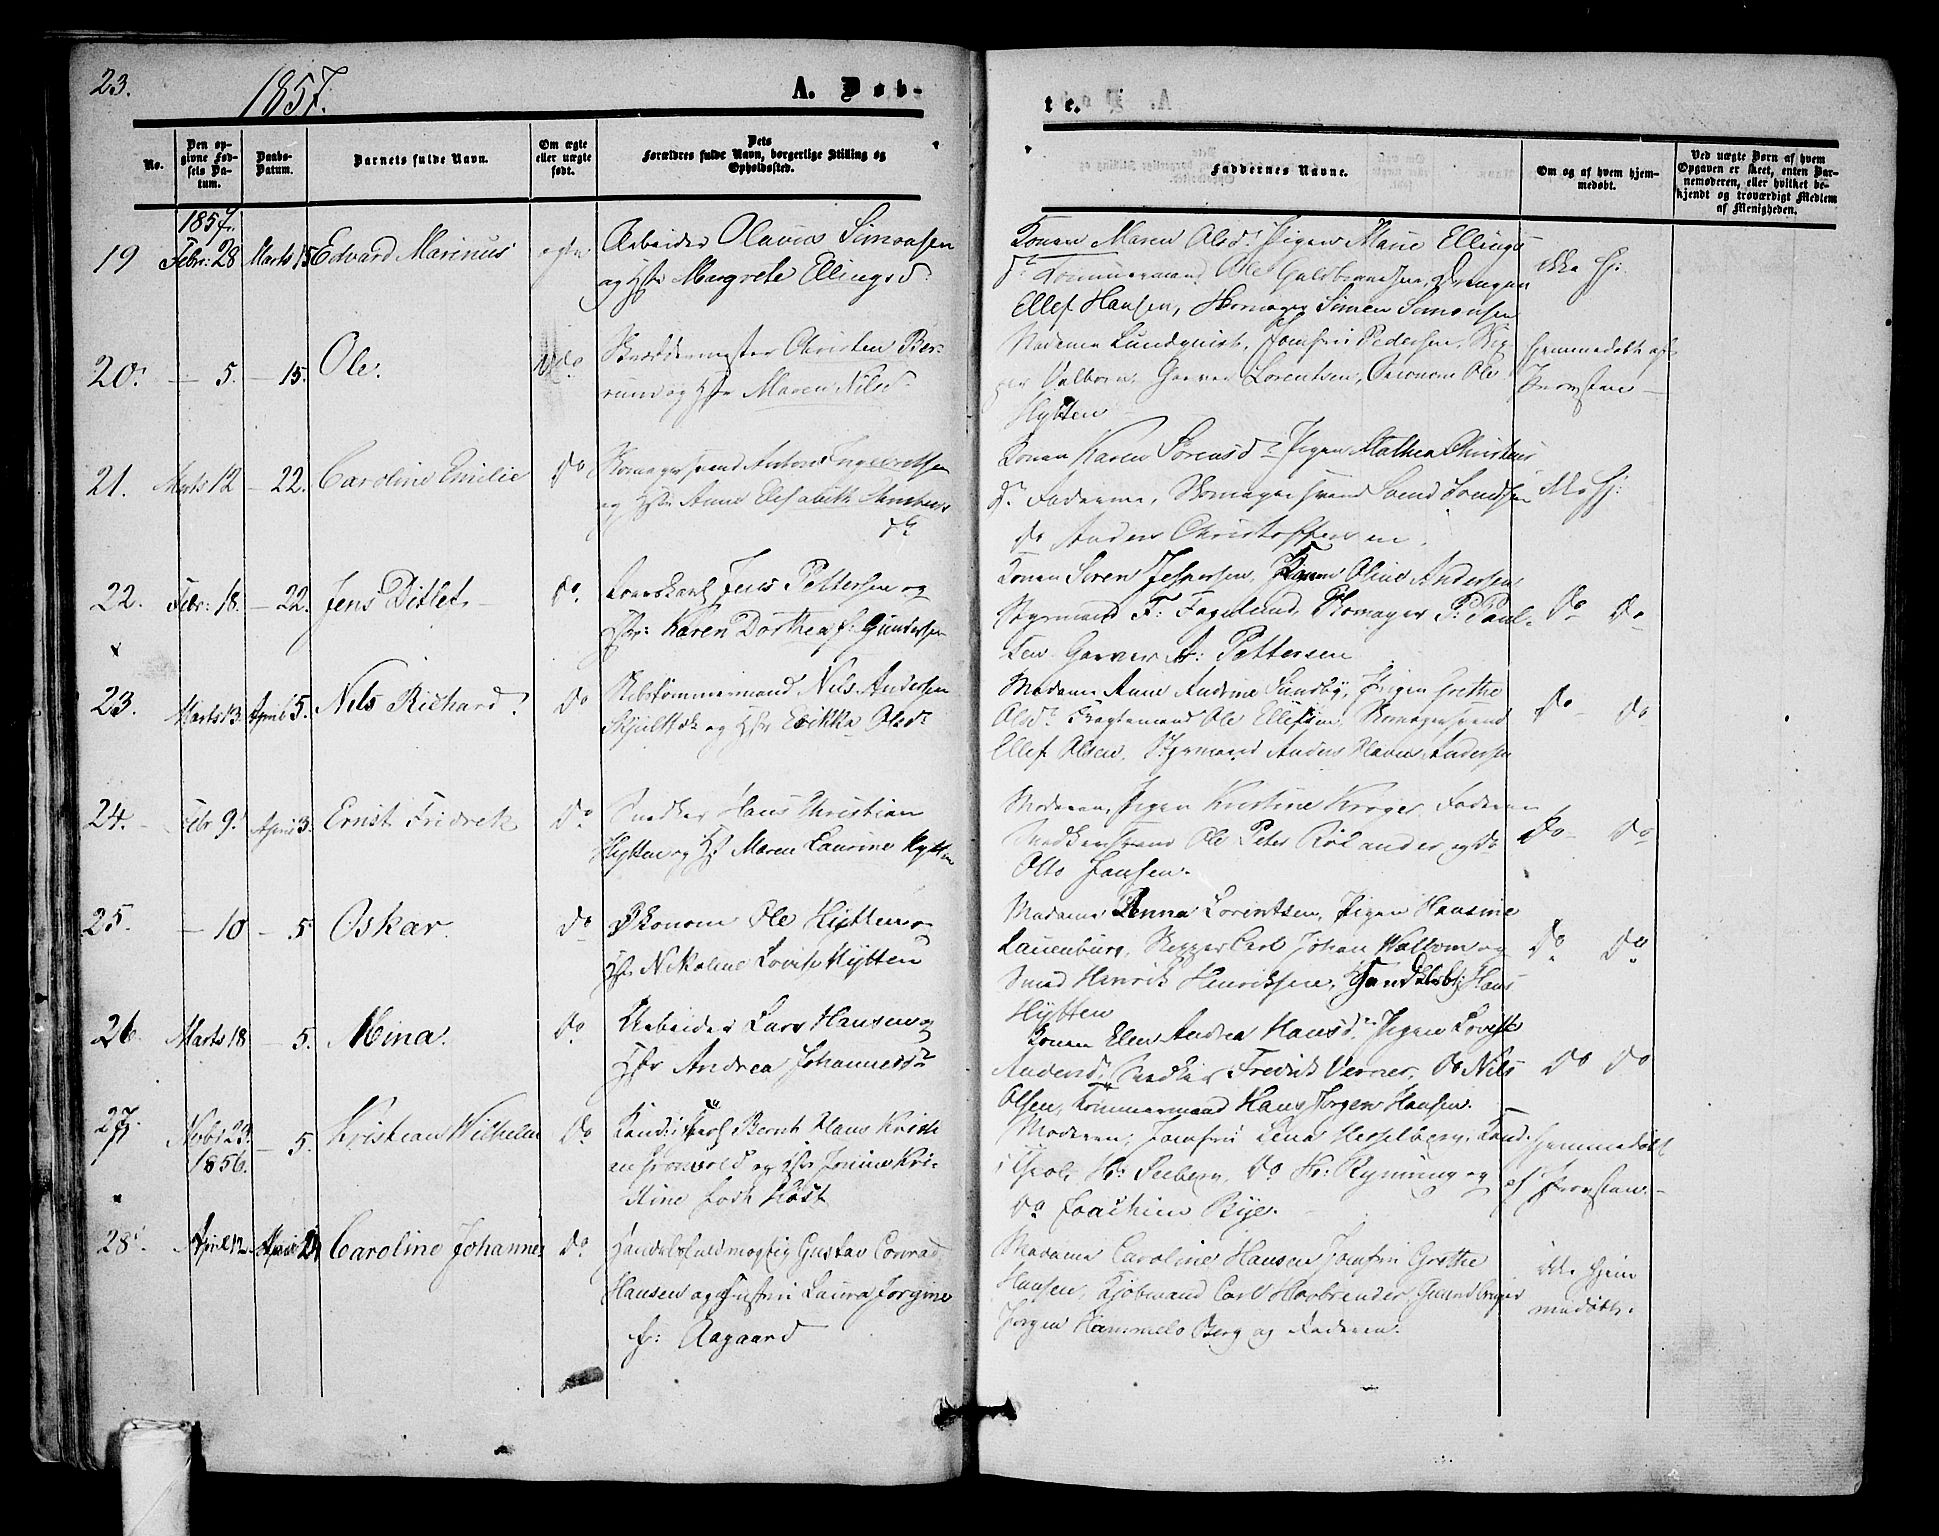 23.
1857.
A. Døb-
te.
No.
Den op-
givne Fød-
sels Da-
tum.
Daabs-
Datum.
Barnets fulde Navn.
Om ægte
eller uægte
født.
Dets
Forældres fulde Navn, borgerlige Stilling og
Opholdssted.
Faddernes Navne.
Om og af hvem hjem-
medøbt.
Ved uægte Børn af hvem
Opgaven er skeet, enten Bar-
nemoderen, eller hvilket be-
kjendt og troværdigt Medlem
af Menigheden.
1857.
19 Febr: 28 Marts 15 Edvard Marinus ægte
Arbeider Olaus Simonsen
og Hst Margrete Ellingsd.
Konen Maren Olsd. Pigen Marie Ellings
d. Tømmermand Ole Guldbrandsen, Drengen
Ellef Hansen, Skomager Simen Simonsen
ikke Hj:
20. — 5. — 15. Ole. Do
Skræddermester Christen Ber-
rum og Hst Maren Nilsd.
Madame Lundqvist, Jomfru Pedersen, Skip
per Valborn, Garver Lorentsen, Oeconom Ole
Hytten
Hjemmedøbt af
Provsten —
21. Marts 12 — 22. Caroline Emilie Do
Skomagersvend Anton Ingebretsen
og Hst Anne Elisabeth
da
Konen Karen Sørensd. Pigen Mathea Christens
d. Faderne, Skomagersvend Svend Svendsen
do Anders Christoffersen.
ikke Hj:
22. Febr: 18. — 22. Jens Ditlef. — Do.
Jens Pettersen og
Hst: Karen Dorthea f: Gundersen
Konen Søren Jespersen, Oline Andersen
Styrmand F: Fagerlund. Skomager P: Paul-
sen. Garver A: Pettersen
Do Do
23. Marts 13. April 5. Nils Richard. Do
Skibstømmermand Nils Andersen
og Hst Erikka Olsd.
Madame Anne Andrine Sundby, Pigen Grethe
Olsd. Fragtemand Ole Ellefsen, Skomagersvend
Ellef Olsen, Styrmand Anders Olaves Andersen
Do — Do
24. Febr 9. April 3. Ernst Fridrek Do
Snedker Hans Christian
Hytten og Hst Maren Laurine Hytten
Moderen, Pigen Kristine Krøger, Faderen
Snedkersvend Ole Peter Rølander og do
Otto Jansen.
Do — Do
25. — 10 — 5. Oskar. Do
Økonom Ole Hytten og
Hst Nikoline Lovise Hytten
Madame Lorentsen, Pigen Hansine
Lauenburg, Skipper Carl Johan Walborn og
Smed Henrik Henriksen, Hans
Hytten
Do Do
26. Marts 18 — 5. Mina. Do
Arbeider Lars Hansen og
Hst Andrea Johannesd.
Konen Elen Andrea Hansd. Pigen Lovise
Andersd. Snedker Fredrik Verner, Do Nils
Olsen, Tømmermand Hans Jørgen Hansen.
Do Do
27. Novbr 23. — 5. Kristian Wilhelm Do
1856.
Kand: i Bernt Klaus Kristi
an Grønvold og Hst Kri-
stine født Høst
Moderen, Jomfru Lena Hesselberg, Kand.
i Theol. Hr: Seeberg, Do Hr: Rynning og
Do Joachim Bije.
Hjemmedøbt
af Provsten. —
28. April 12. April 24 Caroline Johanne Do
Handelsfuldmægtig Gustav Conrad
Hansen og Hustru Laura Jørgine
f: Aagaard
Madame Caroline Hansen, Jomfru Grethe
Hansen, Kjøbmand Carl
Jørgen Hammels Berg og Faderen.
ikke hjem
medøbt.